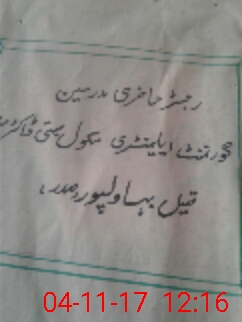 رجسٹر حاضری مدرسین
گورنمنٹ ایلیمنٹری سکول بستی ڈاکٹر
تحصیل بہاولپور صدر
04-11-17 12:16